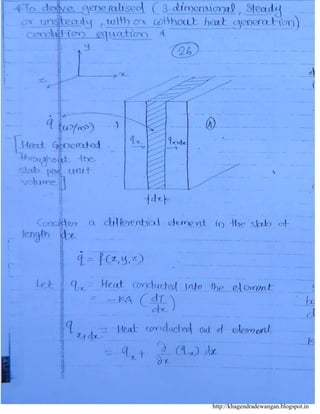 * To derive generalised (3-dimensional, steady
or unsteady, with or without heat generation)
conduction equation :
26
y
x
z
q̇ (W/m³)
[Heat Generated
throughout the
slab per unit
volume]
qx
qx+dx
A
dx
Consider a differential element in the slab of
length dx
q̇ = f(x,y,z)
Let qx = Heat conducted into the element
= -KA (dT/dx)
qx+dx = Heat conducted out of element
= qx + ∂/∂x (qx) dx
http://khagendradewangan.blogspot.in